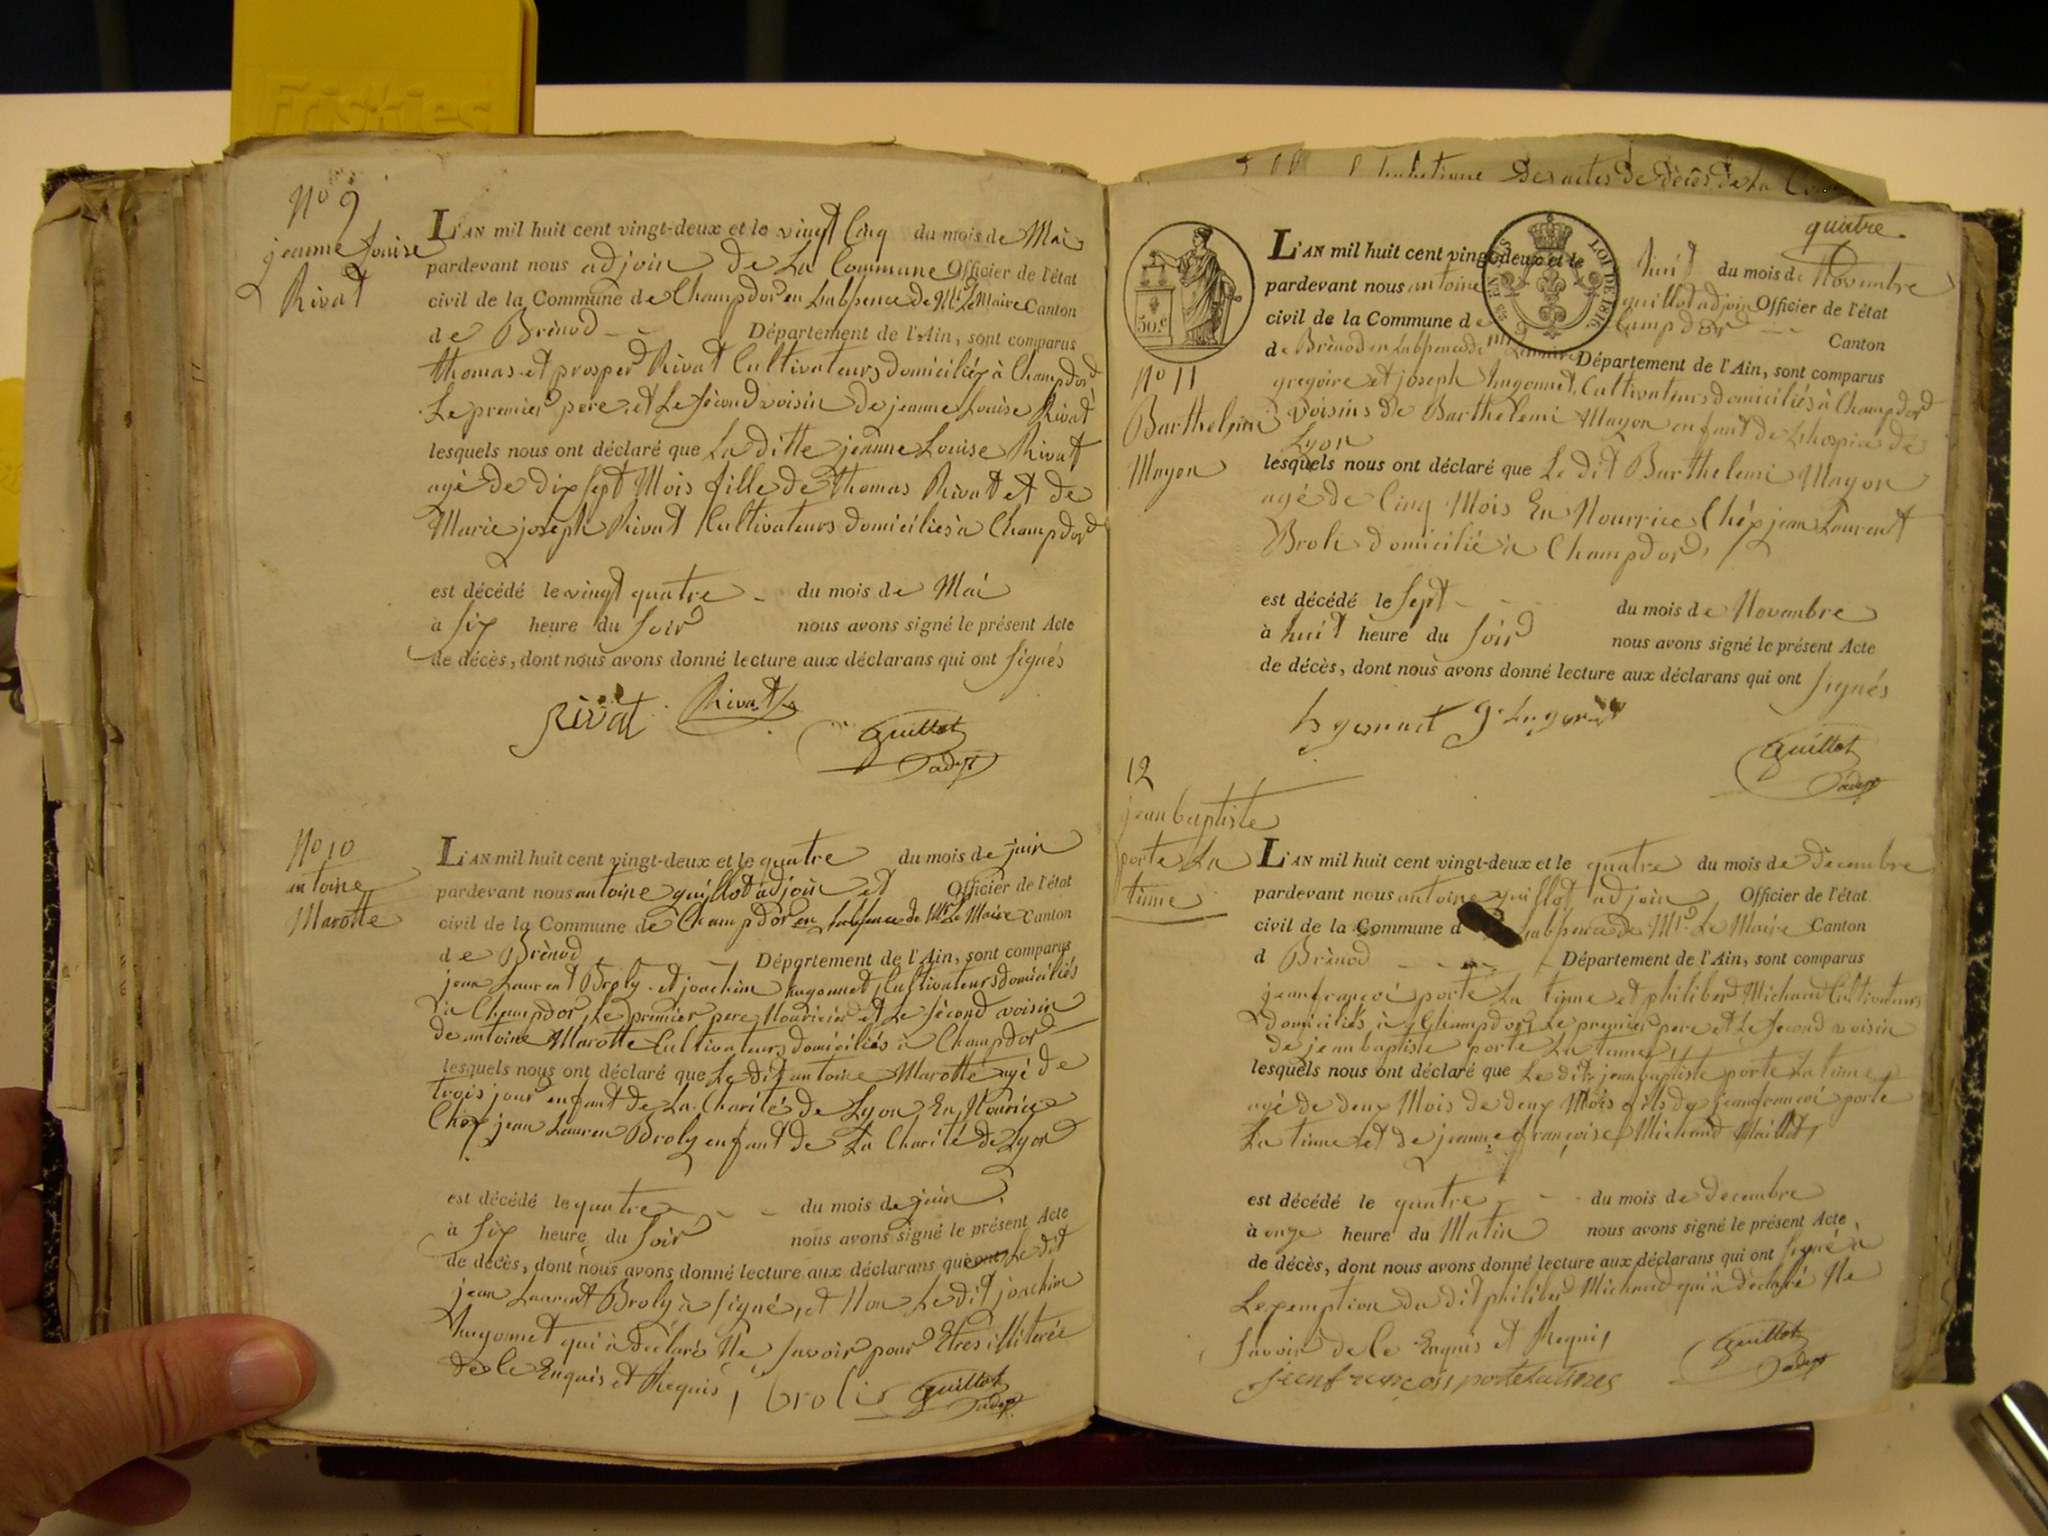 Friskies
No 9
jeanne Louise
Rivat
L'AN mil huit cent vingt-deux et le vingt Cinq du mois de Mai
pardevant nous adjoin de La Commune Officier de l'état
civil de la Commune de Champdor en Labsence de Mr Le Maire Canton
de Brénod Département de l'Ain, sont comparus
thomas et prosper Rivat Cultivateurs domiciliéz à Champdor
Le premier pere et Le sécond voisin de jeanne Louise Rivat
lesquels nous ont déclaré que La ditte jeanne Louise Rivat
agé de dix sept Mois fille de thomas Rivat et de
Marie joseph Rivat Cultivateurs domiciliés à Champdor
est décédé le vingt quatre du mois de Mai
à six heure du soir nous avons signé le présent Acte
de décès, dont nous avons donné lecture aux déclarans qui ont signés
Rivat Rivat
guillot
adjt
No 10
antoine
Marotte
L'AN mil huit cent vingt-deux et le quatre du mois de juin
pardevant nous antoine guillot adjoin et Officier de l'état
civil de la Commune de Champdor en Labsence de Mr Le Maire Canton
de Brénod Département de l'Ain, sont comparus
jean Laurent Broly et joachim hugonnet Cultivateurs domiciliés
à Champdor, Le premier pere Nouricier et Le sécond voisin
de antoine Marotte Cultivateurs domiciliés à Champdor
lesquels nous ont déclaré que Le dit antoine Marotte agé de
trois jour enfant de La Charité de Lyon En Nourrice
Chez jean Lauren Broly enfant de La Charité de Lyon
est décédé le quatre du mois de juin
à six heure du soir nous avons signé le présent Acte
de décès, dont nous avons donné lecture aux déclarans qui ont Le dit
jean Laurent Broly à signé, et Non Le dit joachim
hugonnet qui à déclaré Ne savoir pour Etres illiterée
de le Enquis et Requis, broli guillot
adjt
des actes de décès de La
quatre
50 c.
LOI DE 1816.
L'AN mil huit cent vingt-deux et le huit du mois de Novembre
pardevant nous antoine guillot adjoin Officier de l'état
civil de la Commune de Champdor Canton
de Brénod en Labsence de Mr Le maire Département de l'Ain, sont comparus
No 11
Barthelemi
Mayon
gregoire et joseph hugonnet, Cultivateurs domiciliés à Champdor
voisins de Barthelemi Mayon enfant de Lhospice de
Lyon
lesquels nous ont déclaré que Le dit Barthelemi Mayon
agé de Cinq Mois En Nourrice Chéz jean Laurent
Broli domicilié à Champdor,
est décédé le sept du mois de Novembre
à huit heure du soir nous avons signé le présent Acte
de décès, dont nous avons donné lecture aux déclarans qui ont signés
guillot
adjt
12
jean baptiste
porte La
tinne
L'AN mil huit cent vingt-deux et le quatre du mois de décembre
pardevant nous antoine guillot adjoin Officier de l'état
civil de la Commune d Labsence de Mr Le Maire Canton
d Brénod Département de l'Ain, sont comparus
jean françoi porte La tinne et philiber Michaud Cultivateurs
domiciliés à Champdor, Le premier pere et Le second voisin
de jean baptiste porte La tinne,
lesquels nous ont déclaré que Le dit jean baptiste porte La tinne
agé de deux Mois de deux Mois fils de jean françoi porte
La tinne et de jeanne françoise Michaud Maillet,
est décédé le quatre du mois de decembre
à onze heure du Matin nous avons signé le présent Acte
de décès, dont nous avons donné lecture aux déclarans qui ont signé à
Lexemption du dit philiber Michaud qui à déclaré Ne
savoir de le Enquis et Requis,
jean françois porte latinne
guillot
adjt